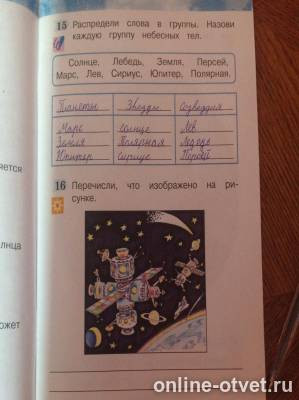 15 Распредели слова в группы. Назови
каждую группу небесных тел.
Солнце, Лебедь, Земля, Персей,
Марс, Лев, Сириус, Юпитер, Полярная.
Планеты Звезды Созвездия
Марс Солнце Лев
Земля Полярная Лебедь
Юпитер Сириус Персей
16 Перечисли, что изображено на ри-
сунке.
яется
лнца
ожет
online-otvet.ru